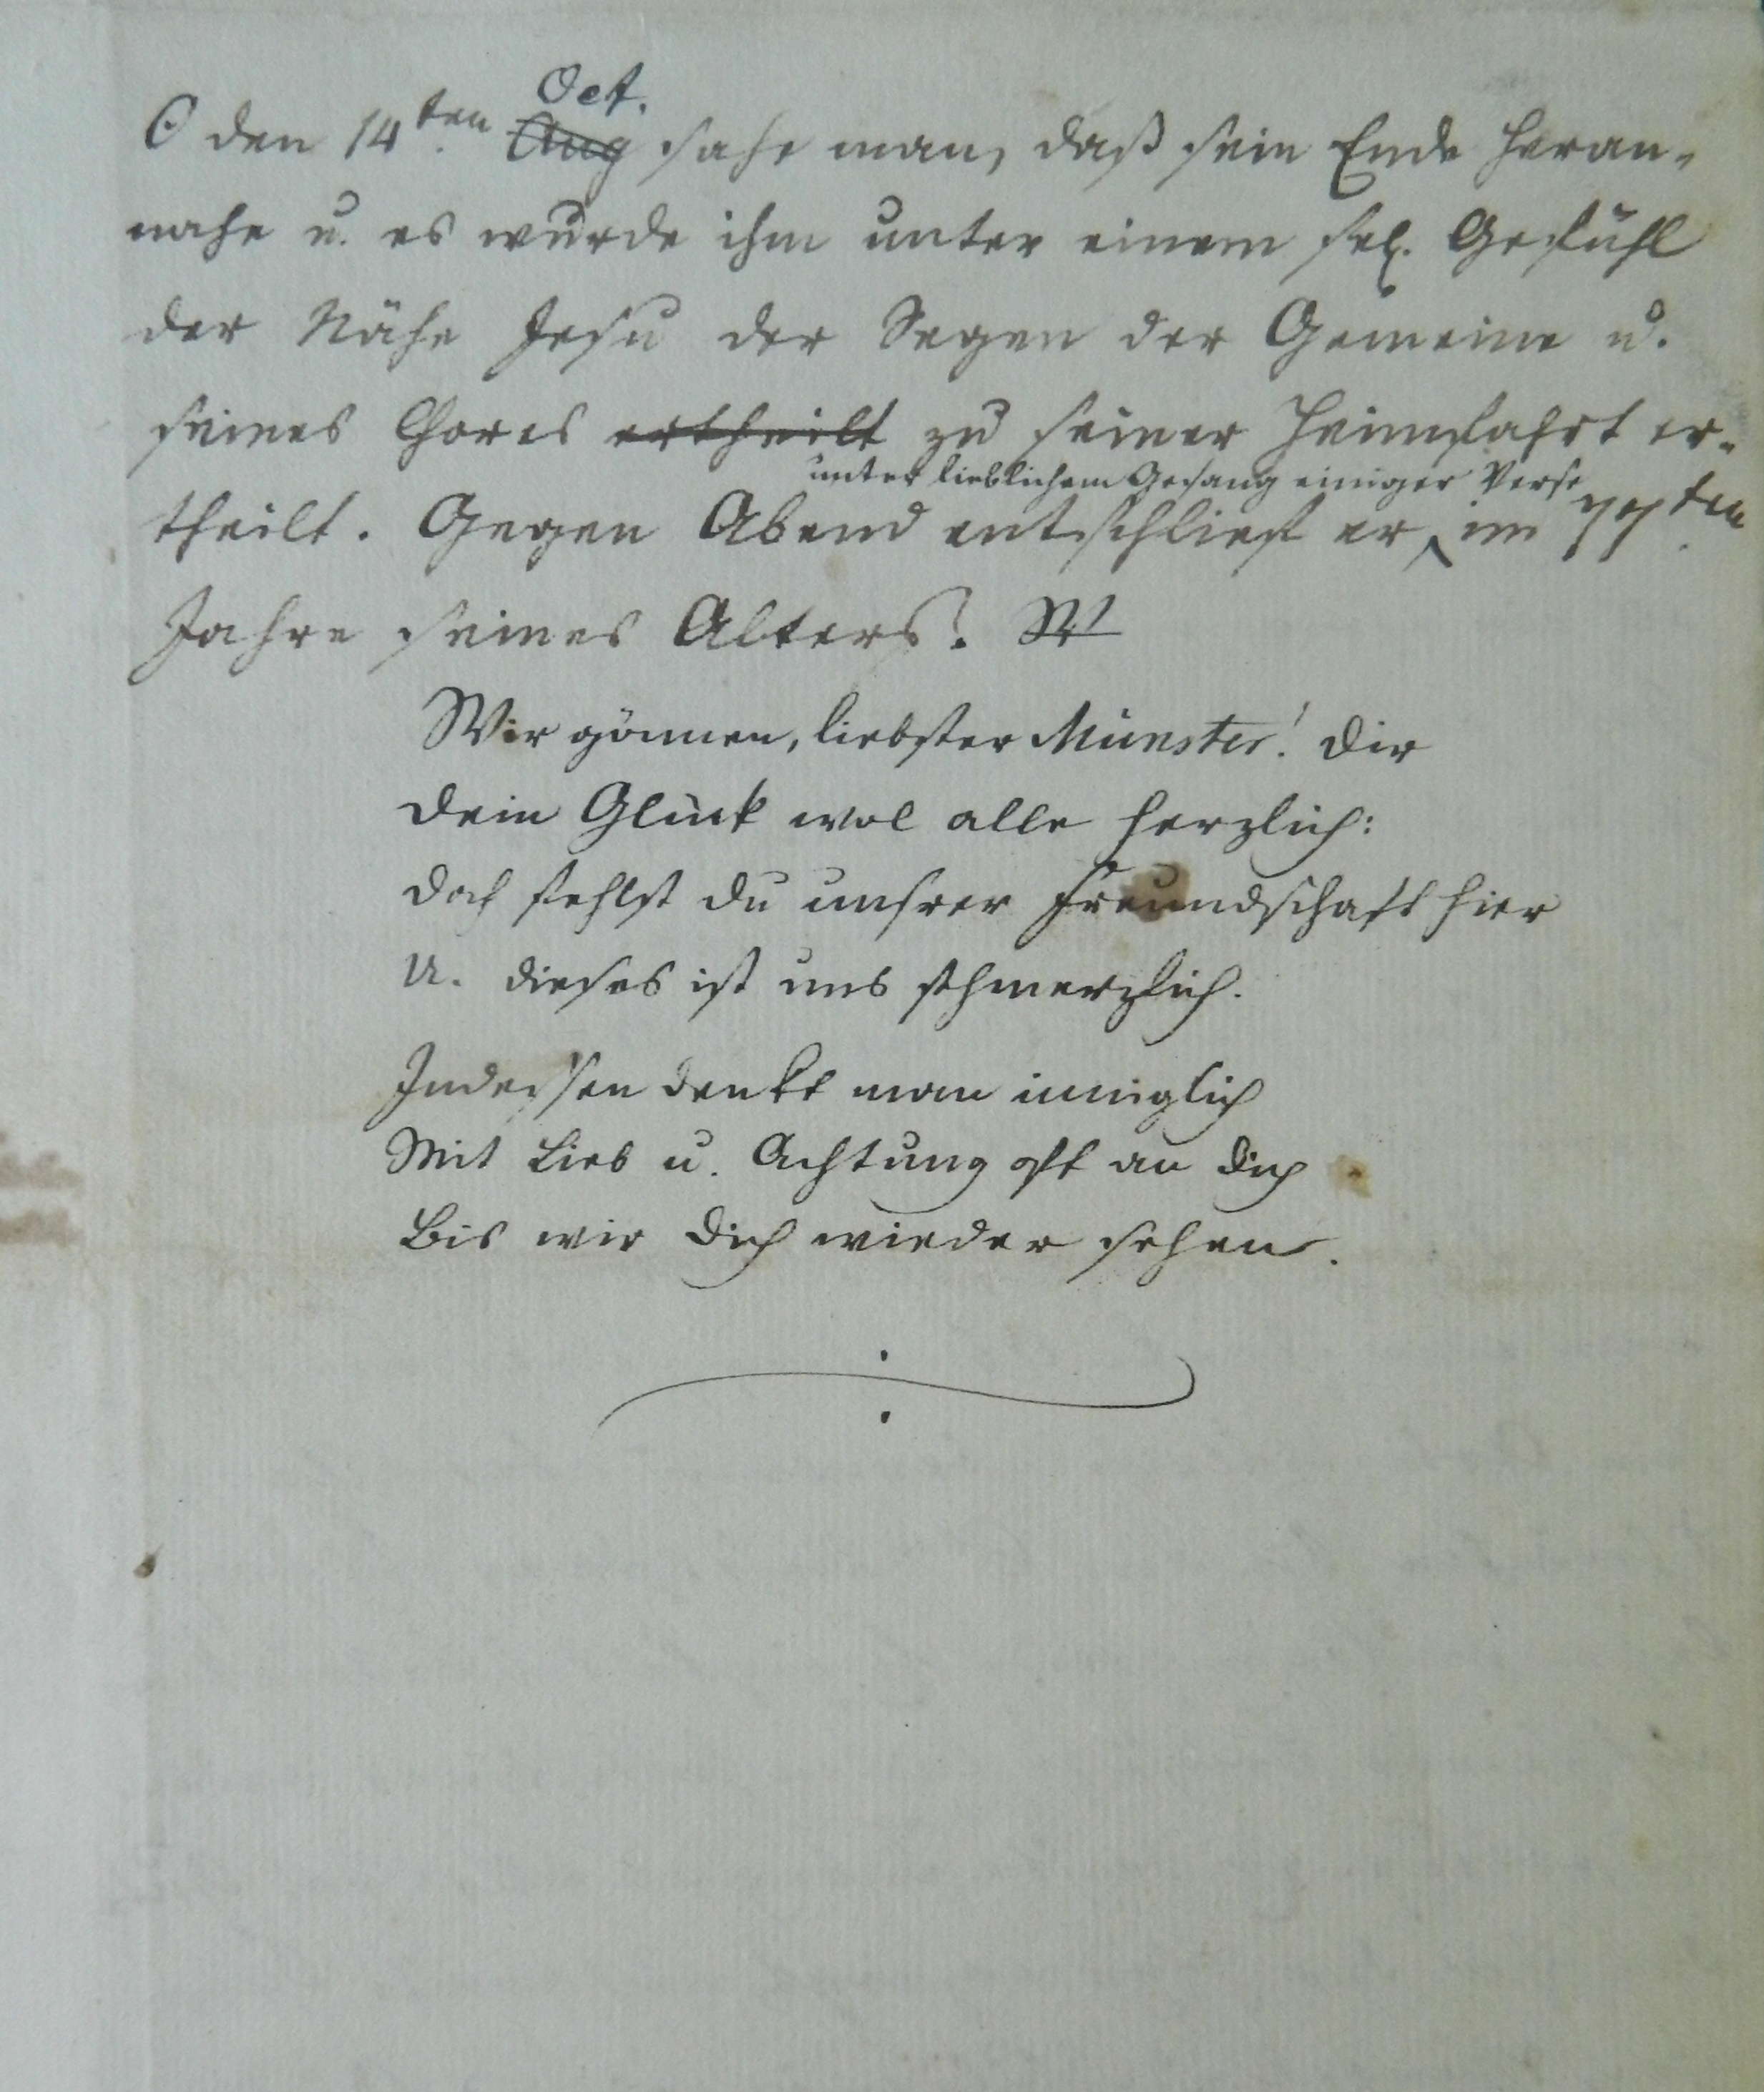 ☉ den 14ten. Oct. Aug sahe man, daß sein Ende heran-
nahe u. es wurde ihm unter einem sel. Gefühl
der Nähe Jesu der Segen der Gemeine u.
seines Chores ertheilt zu seiner Heimfahrt er-
unter lieblichem Gesang einiger Verse
theilt. Gegen Abend entschlief er im 77ten
Jahre seines Alters.
Wir gönnen, liebster Münster! dir
dein Glück wol alle herzlich:
doch fehlst du unsrer Freundschaft hier
U. dieses ist uns schmerzlich.
Indessen denkt man inniglich
Mit Lieb u. Achtung oft an dich
Bis wir dich wieder sehen.